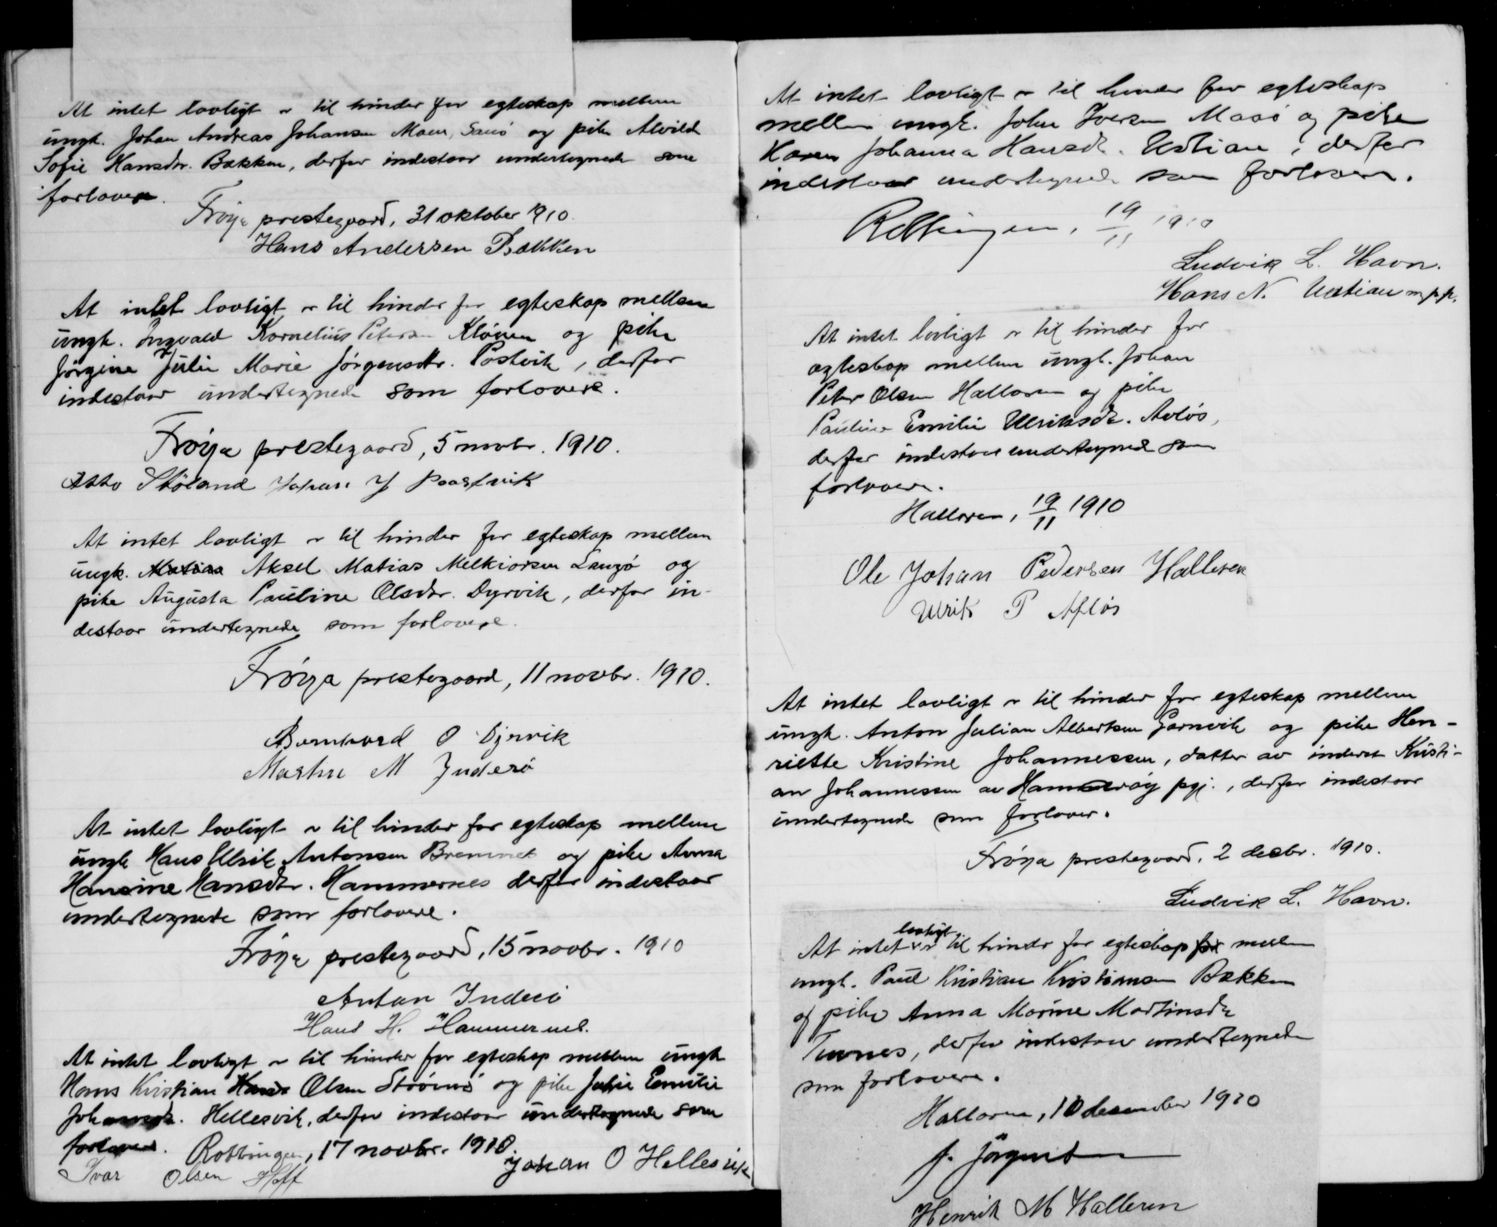 At intet lovligt er til hinder for egteskap mellem
ungk. Johan Andreas Johansen Moen, og pike Alvilde
Sofie Hansdr. Bækken, derfor indestaar undertegnede som
forlovere.
Frøya prestegaard, 31 oktober 1910.
Hans Andersen Bækken
At intet lovligt er til hinder for egteskap mellem
ungk. Ingvald Kornelius Petersen og pike
Jørgine Julie Marie Jørgensdtr. Postvik, derfor
indestaar undertegnede som forlovere.
Frøya prestegaard, 5 novbr. 1910.
Otto Johan J Paastvik
At intet lovligt er til hinder for egteskap mellem
ungk. Aksel Matias Melkiorsen og
pike Augusta Pauline Olsdtr. Dyrvik, derfor in-
destaar undertegnede som forlovere.
Frøya prestegaard, 11 novbr. 1910.
Bernhard O Dyrvik
M Inderø
At intet lovligt er til hinder for egteskap mellem
ungk Hans Ulrik Antonsen Bremnes og pike Anna
Hansine Hansdtr. Hammernes derfor indestaar
undertegnede som forlovere.
Frøya prestegaard, 15 novbr. 1910
Anton Inderø
Hans H. Hammernes.
At intet lovligt er til hinder for egteskap mellem ungk
Hans Kristian Olsen og pike Julie Emilie
Johansdr. Hellesvik, derfor indestaar undertegnede som
forlovere. 17 novbr. 1910
Ivar Olsen Hoff Johan O Hellesvik
At intet lovligt er til hinder for egteskap
mellem ungk. John Iversen Masø og pike
Karen Johanna Hansdr. Ustian, derfor
indestaar undertegnede som forlovere.
19/11 1910
Ludvik L. Havn.
Hans N. Ustian m.p.p.
At intet lovligt er til hinder for
egteskap mellem ungk. Johan
Peter Olsen Halloren og pike
Pauline Emilie Ulriksdr. Avløs,
derfor indestaar undertegnede som
forlovere.
Halloren, 19/11 1910
Ole Johan Pedersen Halleren
Ulrik P Afløs
At intet lovligt er til hinder for egteskap mellem
ungk. Anton Julian Albertsen Garnvik og pike Hen-
riette Kristine Johannessen, datter av inderst Kristi-
an Johannessen av Hammerøy pgj., derfor indestaar
undertegnede som forlover.
Frøya prestegaard, 2 decbr. 1910.
Ludvik L. Havn.
lovligt
At intet er til hinder for egteskap mellem
ungk. Paul Kristian Kristiansen Bækken
og pike Anna Marine Martinsdr
derfor indestaar undertegnede
som forlovere.
Halloren, 10 desember 1910
J. Jørgensen
Henrik M Halleren